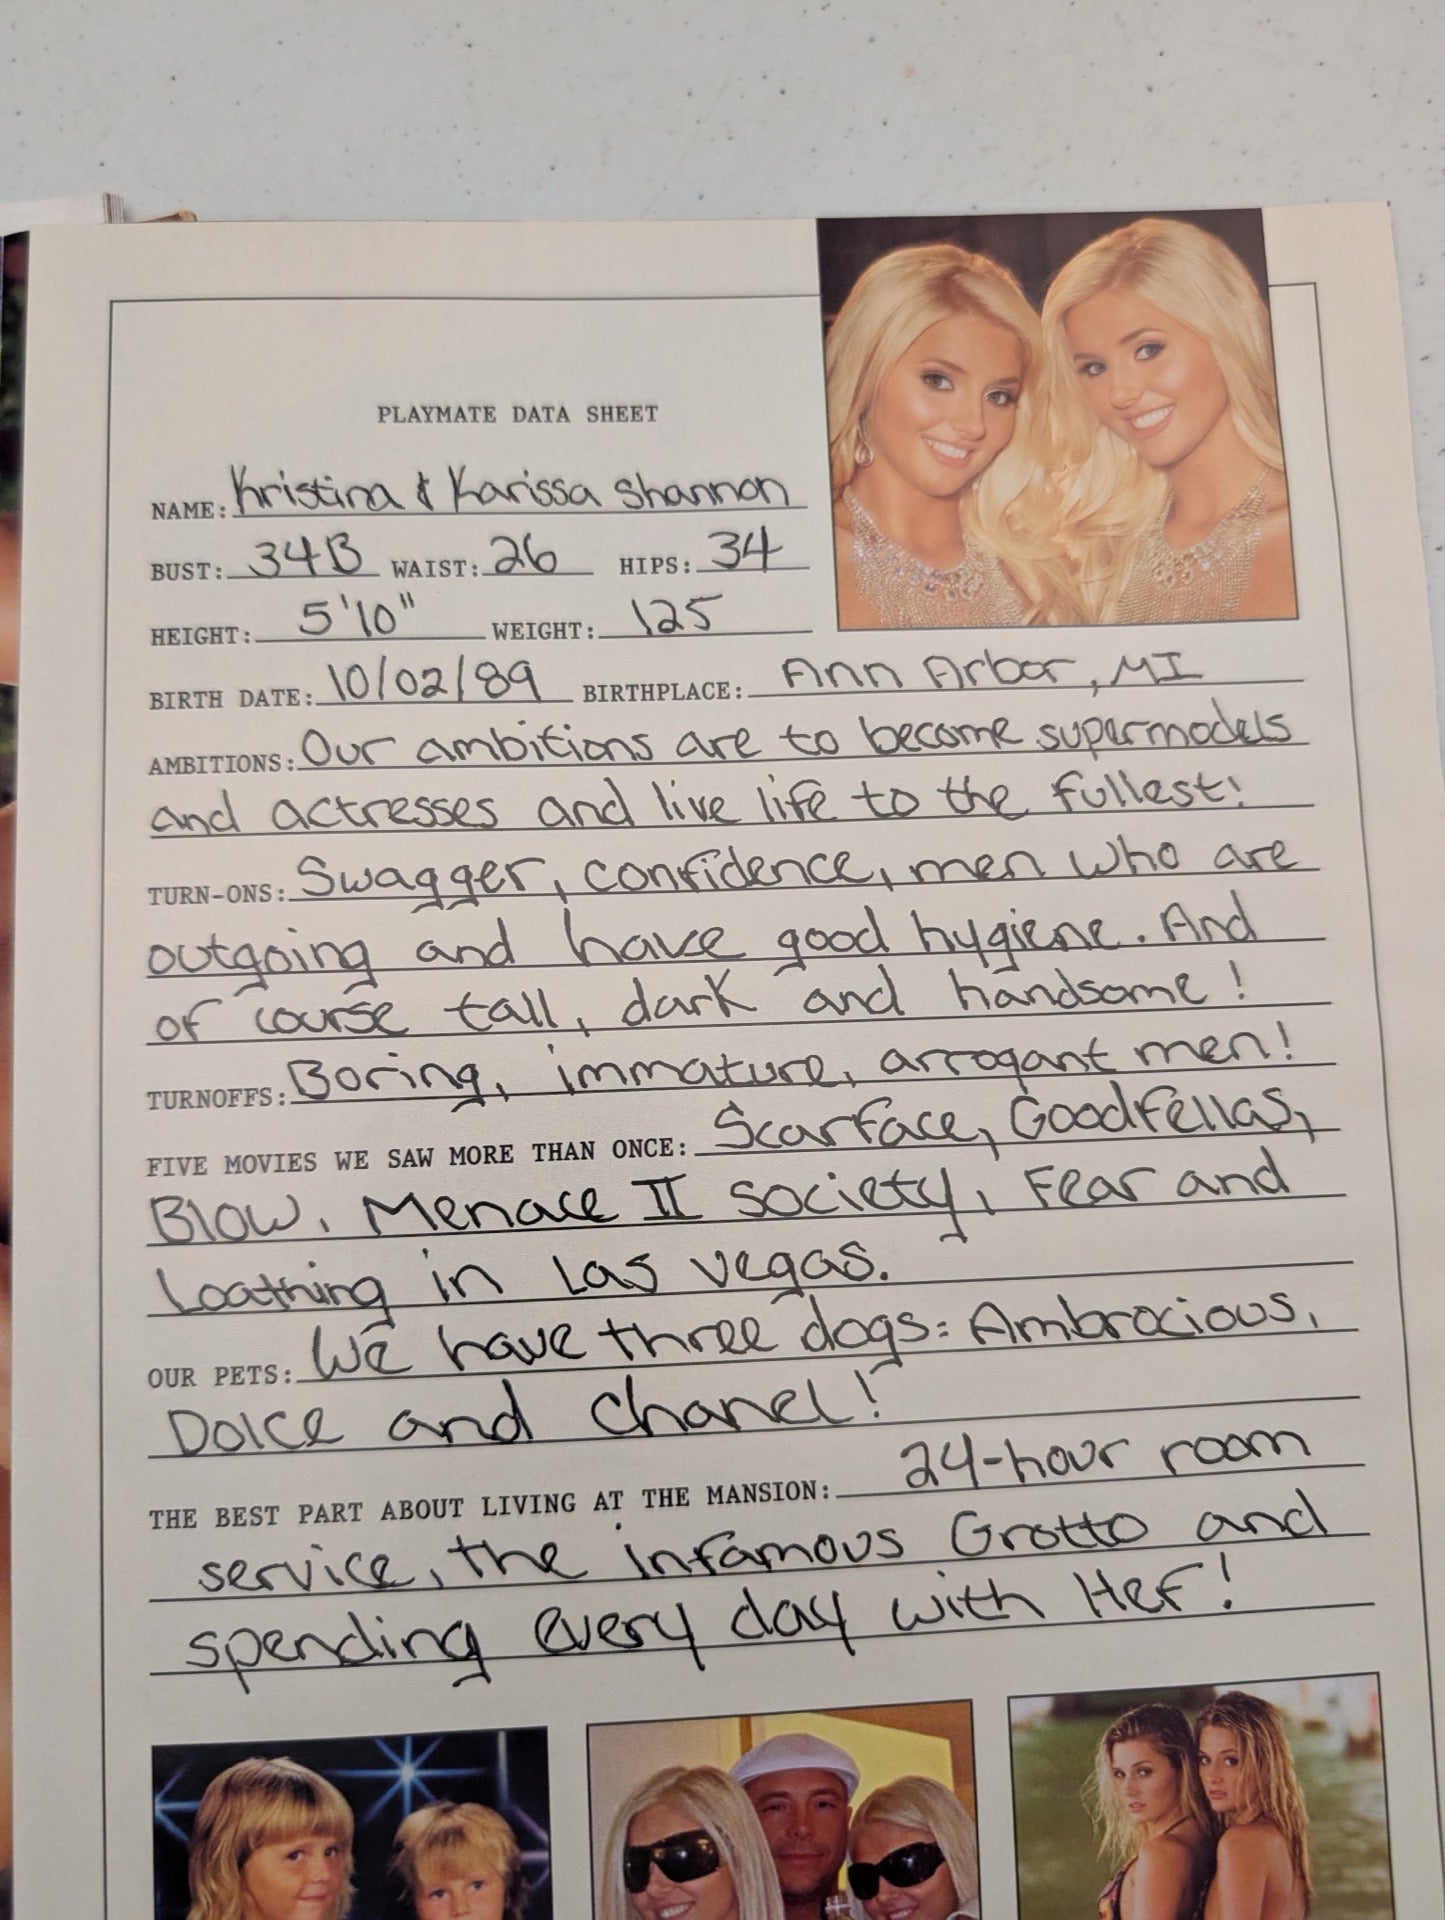 PLAYMATE DATA SHEET
NAME: Kristina & Karissa Shannon
BUST: 34B WAIST: 26 HIPS: 34
HEIGHT: 5'10" WEIGHT: 125
BIRTH DATE: 10/02/89 BIRTHPLACE: Ann Arbor, MI
AMBITIONS: Our ambitions are to become supermodels
and actresses and live life to the fullest!
TURN-ONS: Swagger, confidence, men who are
outgoing and have good hygiene. And
of course tall, dark and handsome!
TURNOFFS: Boring, immature, arrogant men!
FIVE MOVIES WE SAW MORE THAN ONCE: Scarface, Goodfellas,
Blow, Menace II Society, Fear and
Loathing in Las Vegas.
OUR PETS: We have three dogs: Ambrocious,
Dolce and Chanel!
THE BEST PART ABOUT LIVING AT THE MANSION: 24-hour room
service, the infamous Grotto and
spending every day with Hef!